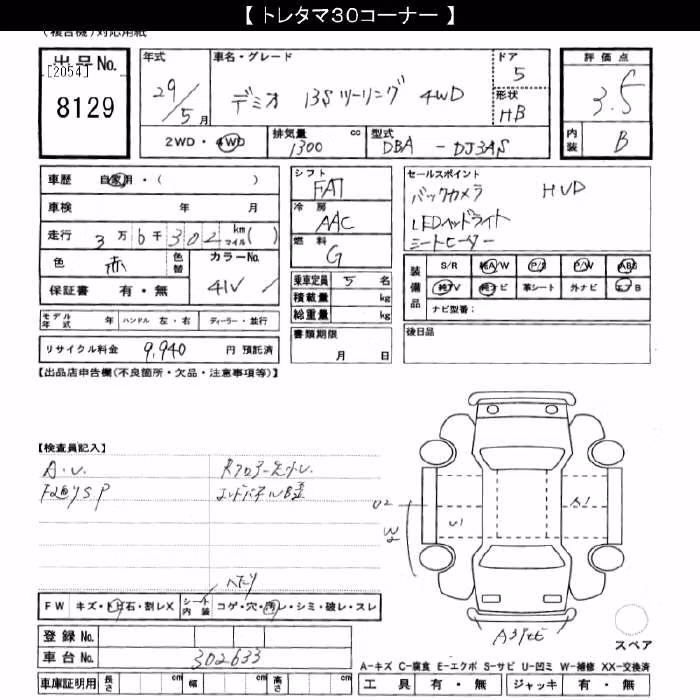 【 トレタマ30コーナー 】
(複合機)対応用紙
出品No.
[2054]
8129
年式
29/5月
車名・グレード
デミオ 13Sツーリング 4WD
ドア
5
形状
HB
評価点
3.5
内装
B
2WD・4WD
排気量
1300 cc
型式
DBA - DJ3AS
車歴 自家用・( )
車検 年 月
走行 3万6千302 km マイル( )
色 赤 色替
カラーNo.
41V
保証書 有・無
シフト
FAT
冷房
AAC
燃料
G
乗車定員 5 名
積載量 kg
総重量 kg
セールスポイント
バックカメラ HUD
LEDヘッドライト
シートヒーター
装備品
S/R 純A/W P/S P/W ABS
純TV 純ナビ 革シート 外ナビ エアB
ナビ型番:
モデル年式 年 ハンドル 左・右 ディーラー・並行
書類期限
月 日
後日品
リサイクル料金 9,940 円 預託済
【出品店申告欄(不良箇所・欠品・注意事項等)】
【検査員記入】
A・U.
エンドパネルB歪
U2
W2
U1
A1
FW キズ・トビ石・割レX シート内装 コゲ・穴・汚レ・シミ・破レ・スレ
ヘタリ
登録No.
車台No. 302633
スペア
A-キズ C-腐食 E-エクボ S-サビ U-凹ミ W-補修 XX-交換済
車庫証明用 長さ cm 幅 cm 高さ cm
工具 有・無 ジャッキ 有・無